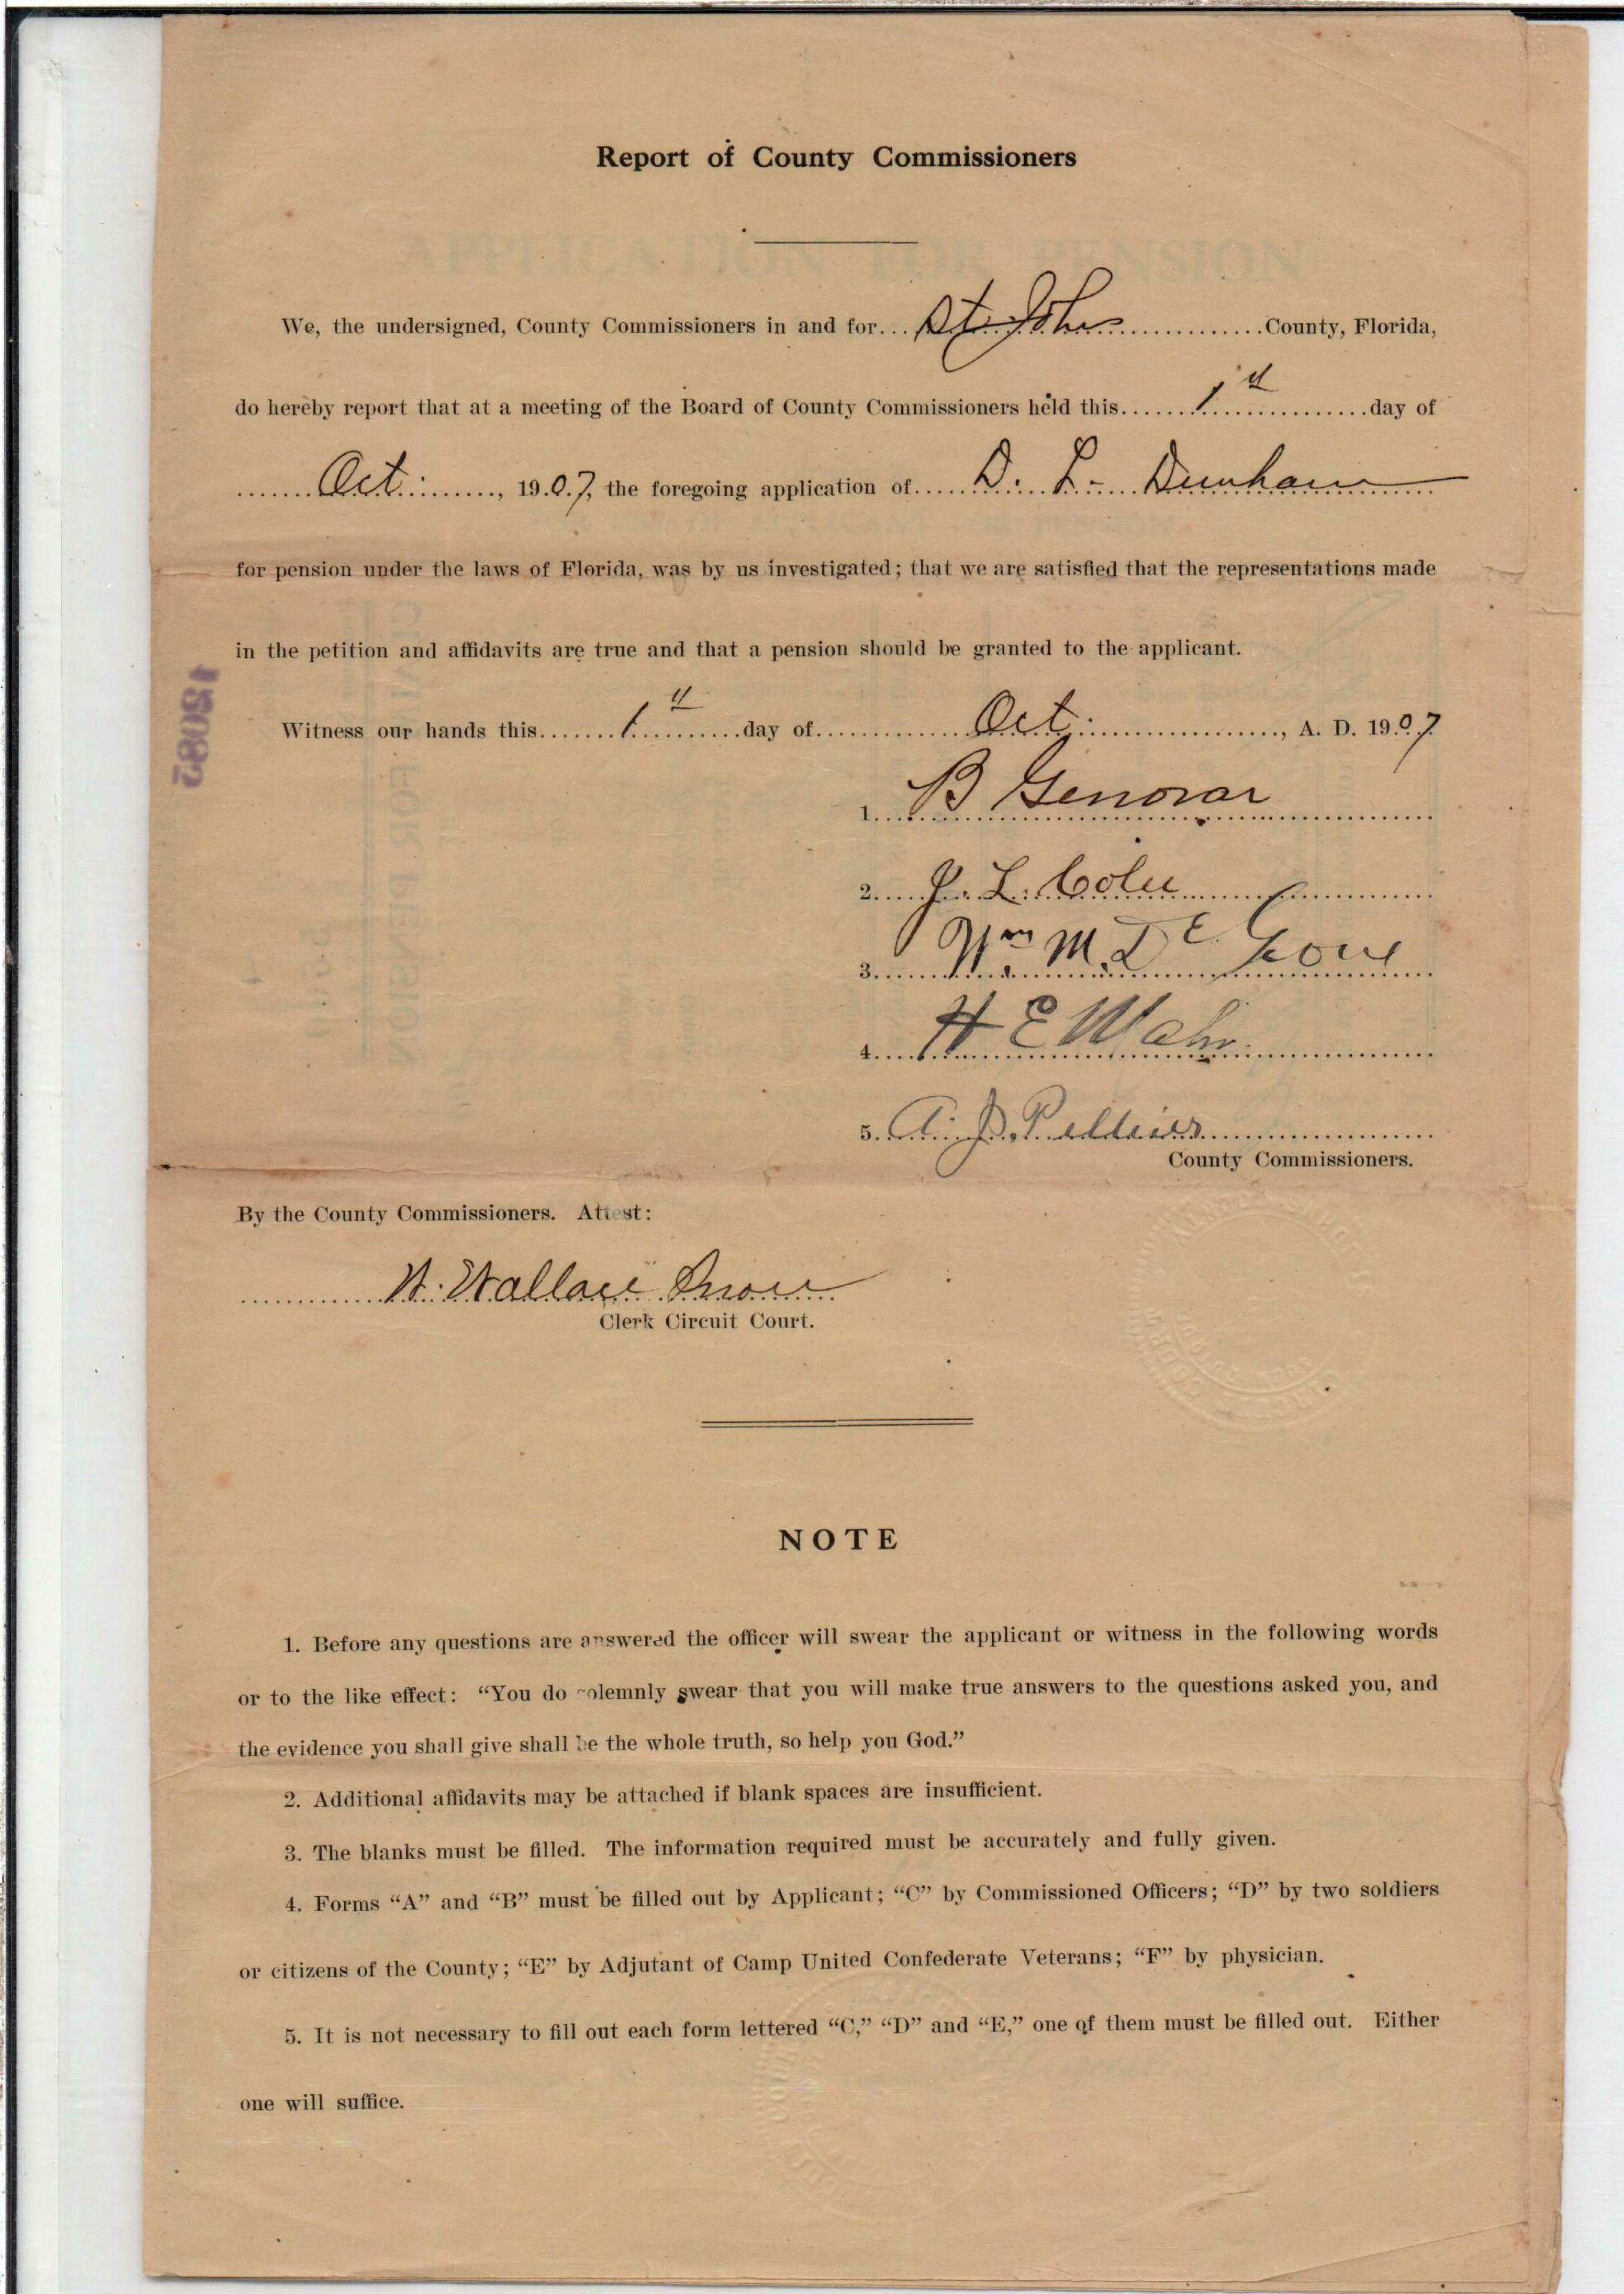 Report of County Commissioners
We, the undersigned, County Commissioners in and for... St. Johns ...County, Florida,
do hereby report that at a meeting of the Board of County Commissioners held this... 1st ...day of
Oct. , 1907, the foregoing application of... D. L. Dunham
for pension under the laws of Florida, was by us investigated; that we are satisfied that the representations made
in the petition and affidavits are true and that a pension should be granted to the applicant.
18085
Witness our hands this... 1st ...day of... Oct. , A. D. 1907
1. B Genovar
2. J. L.
3. Wm M. De
4. H E
5. A. J. Pellicer
County Commissioners.
By the County Commissioners. Attest:
W. Wallace Snow
Clerk Circuit Court.
NOTE
1. Before any questions are answered the officer will swear the applicant or witness in the following words
or to the like effect: “You do solemnly swear that you will make true answers to the questions asked you, and
the evidence you shall give shall be the whole truth, so help you God.”
2. Additional affidavits may be attached if blank spaces are insufficient.
3. The blanks must be filled. The information required must be accurately and fully given.
4. Forms “A” and “B” must be filled out by Applicant; “C” by Commissioned Officers; “D” by two soldiers
or citizens of the County; “E” by Adjutant of Camp United Confederate Veterans; “F” by physician.
5. It is not necessary to fill out each form lettered “C,” “D” and “E,” one of them must be filled out. Either
one will suffice.